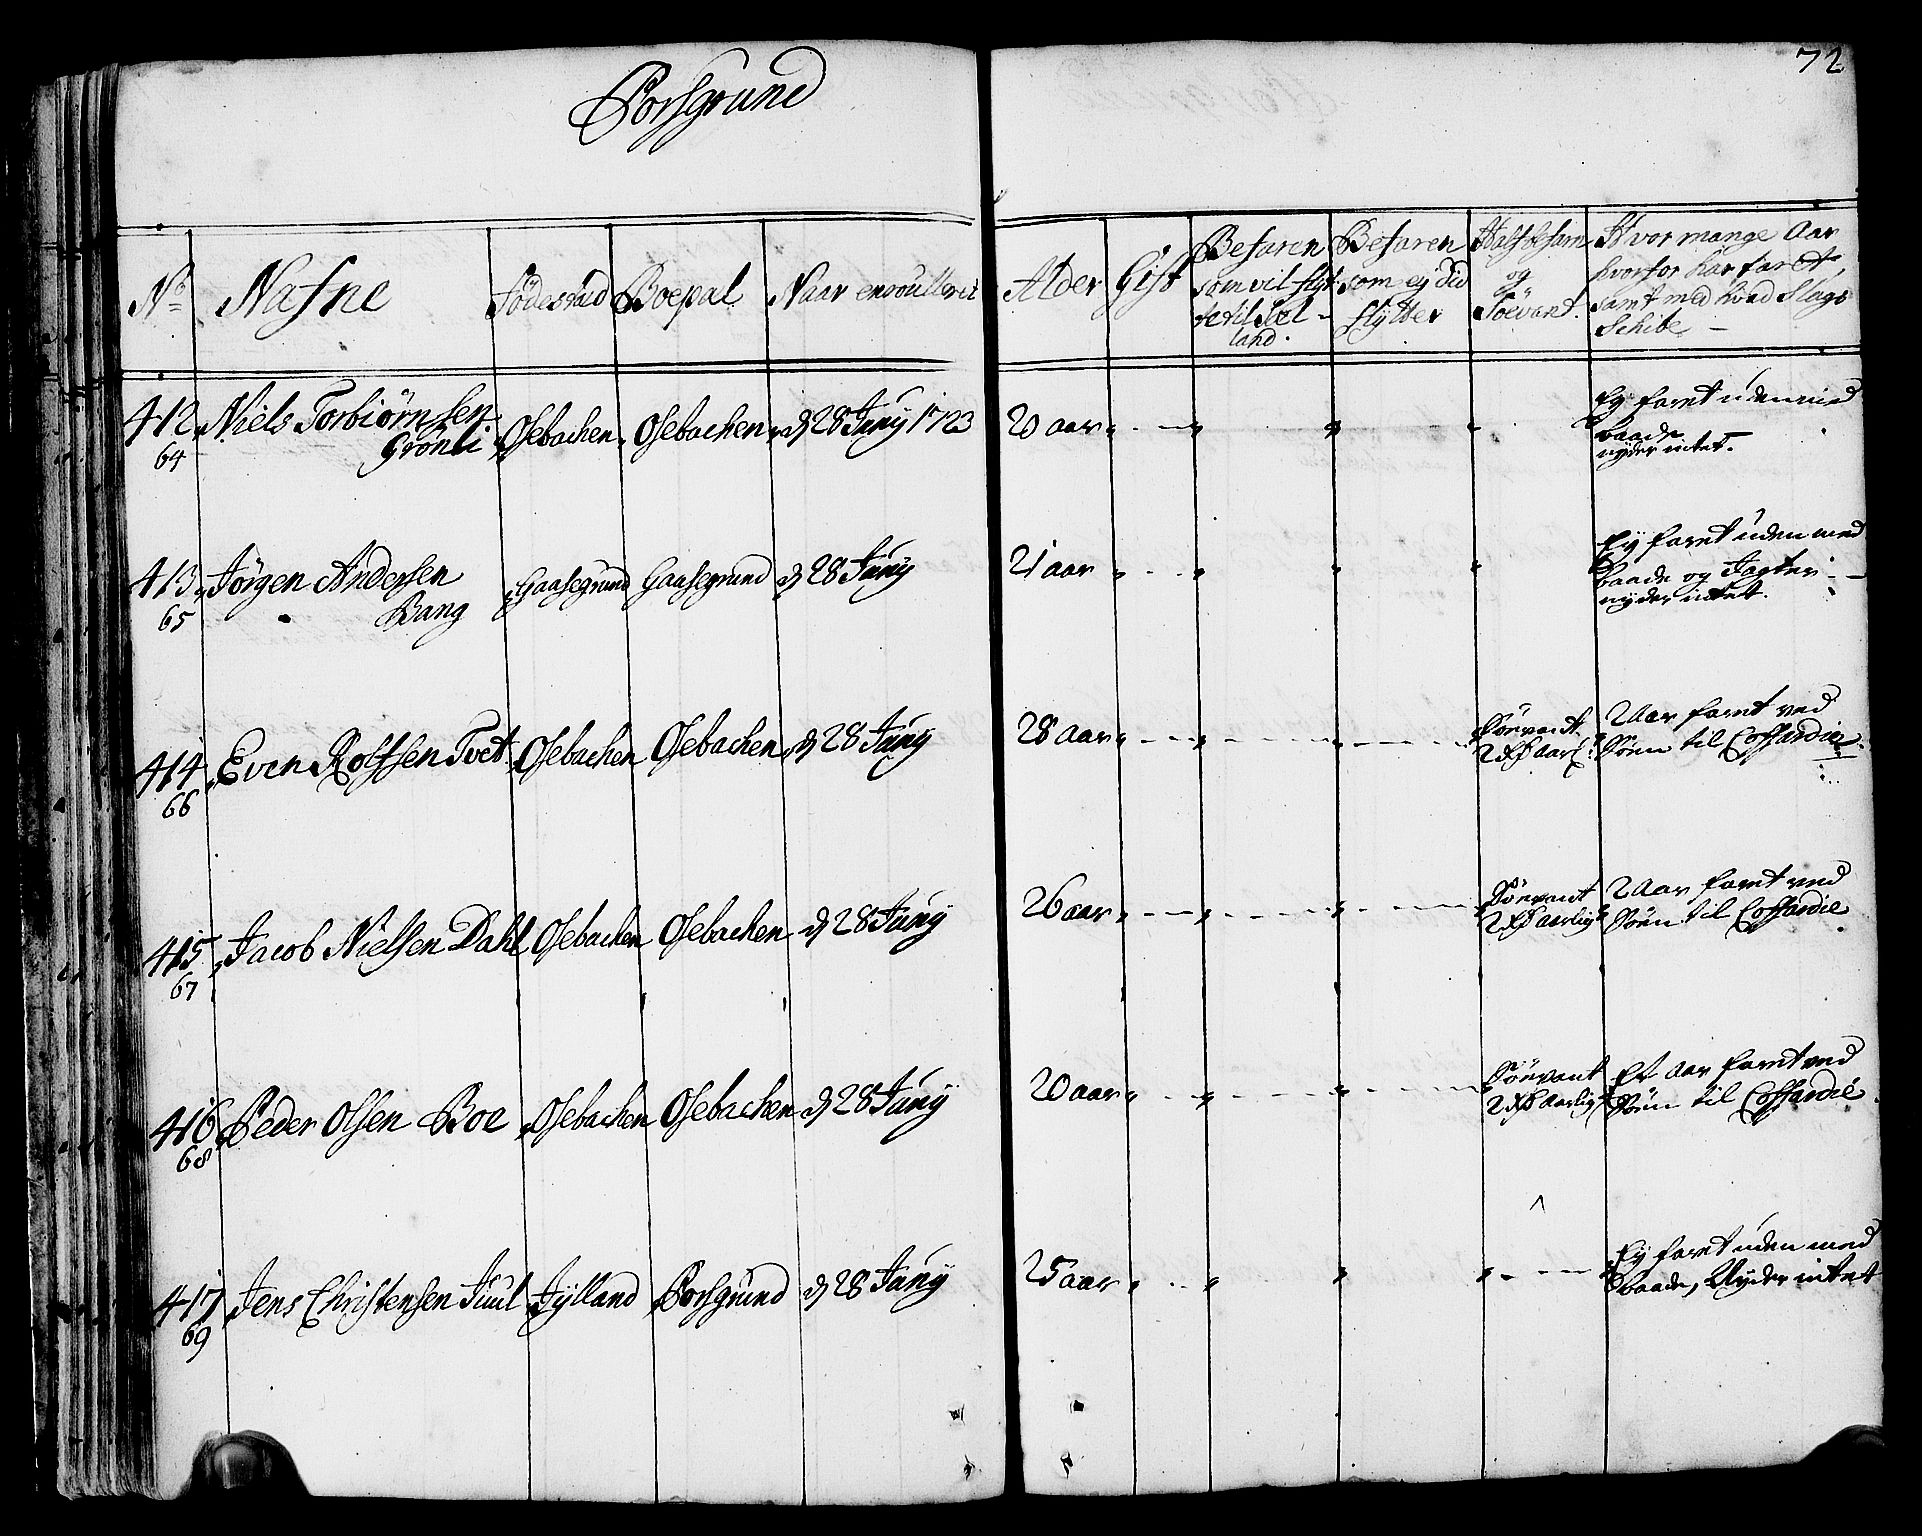 72
Porsgrund
No Nafne Födestæd Boepæl Naar enroullerit Alder Gift Befaren som vil flytte til Siel-land. Befaren som ej did flytter Halfbefarn og Söevant. Hvor mange Aar hvorfor har faret, samt med hvad Slags Schibe –
412 Niels Torbiörnsen Osebachen Osebachen d 28 Juny 1723 20 aar Ey faret uden med
64 Grönli baade
nyder intet.
413 Jörgen Andersen Gaasegrund Gaasegrund d 28 Juny 21 aar Ey faret uden med
65 Bang baade og Jagter
nyder intet.
414 Even Rolfsen Tvet Osebachen Osebachen d 28 Juny 28 aar Söevant 2 Aar faret ved
66 2 aarl: Söen til Coffardie
415 Jacob Nielsen Dahl Osebachen Osebachen d 28 Juny 26 aar Söevant 2 Aar faret ved
67 2 aarlig Söen til Coffardie
416 Peder Olsen Boe Osebachen Osebachen d 28 Juny 20 aar Söevant Et aar faret ved
68 2 aarlig Söen til Coffardie
417 Jens Christensen Juul Jylland Porsgrund d 28 Juny 25 aar Ey faret uden med
69 baade, Nyder intet